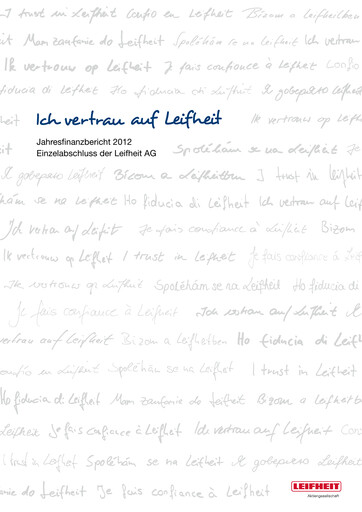 I trust in Leifheit Confío en Leifheit Bízom a leifheitben
eit Mam zaufanie do Leifheit Spoléhám se na Leifheit Ich vertrau
Ik vertrouw op Leifheit Je fais confiance à Leifheit Confío
fiducia di Leifheit Ho fiducia di Leifheit Я доверяю Leifheit
heit Ich vertrau auf Leifheit Ik vertrouw op Leifheit
Jahresfinanzbericht 2012
Einzelabschluss der Leifheit AG Spoléhám se na Leifheit Je fais
Я доверяю Leifheit Bízom a Leifheitben I trust in Leifheit
hám se na Leifheit Ho fiducia di Leifheit Ich vertrau auf Leif
Ich vertrau auf Leifheit Je fais confiance à Leifheit Bízom
Ik vertrouw op Leifheit I trust in Leifheit Je fais confiance à Leif
Ik vertrouw op Leifheit Spoléhám se na Leifheit Ho fiducia di
Je fais confiance à Leifheit Ich vertrau auf Leifheit Я
vertrau auf Leifheit Bízom a Leifheitben Ho fiducia di Leif
onfío en Leifheit Spoléhám se na Leifheit I trust in Leifheit
Ho fiducia di Leifheit Mam zaufanie do Leifheit Bízom a Leifheitben
Leifheit Je fais confiance à Leifheit Ich vertrau auf Leifheit Con
I trust à Leifheit Spoléhám se na Leifheit Я доверяю Leifheit
anie do Leifheit Je fais confiance à Leifheit
LEIFHEIT
Aktiengesellschaft